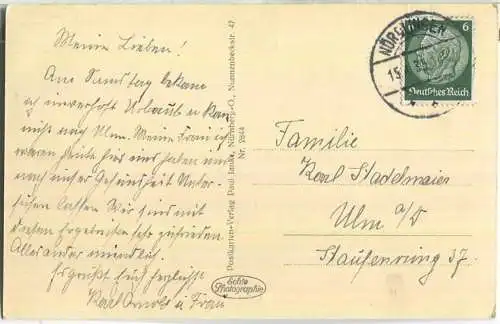 Meine Lieben!
Am Samstag bekam
ich unverhofft Urlaub u. kam
nicht nach Ulm. Meine Frau u. ich
waren heute hier und haben uns
nach unser Gesundheit Unter-
suchen lassen. Wir sind mit
dem Ergebnis sehr zufrieden.
Alles andere mündlich.
Es grüßt Euch herzlichst
Karl u. Frau
Postkarten-Verlag Paul Janke, Nürnberg-O., Nunnenbeckstr. 47
Nr. 2844
Echte
Photographie
NÖRDLINGEN
15.
6
Deutsches Reich
Familie
Karl Stadelmaier
Ulm a/D
Staufenring 37.